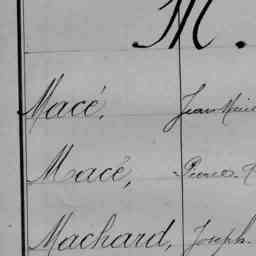 M.
Macé, Jean Marie
Macé, Pierre
Machard, Joseph